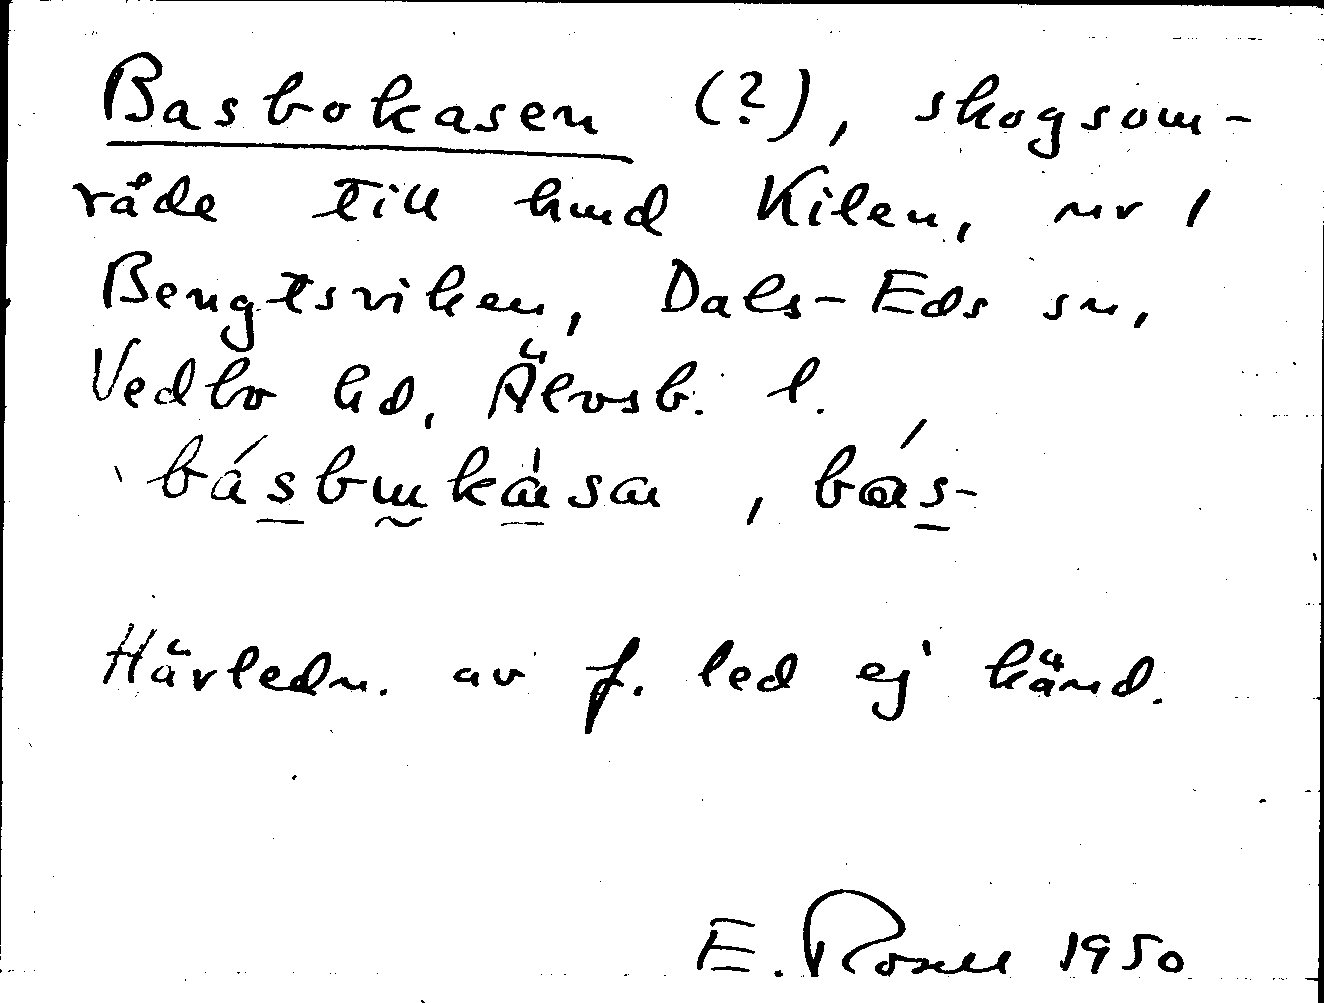 Basbokasen (?), skogsom-
råde till hmd Kilen, nr 1
Bengtsviken, Dals-Eds sn,
Vedbo hd, Älvsb. l.
Härledn. av f. led ej känd.
E. Rosell 1950